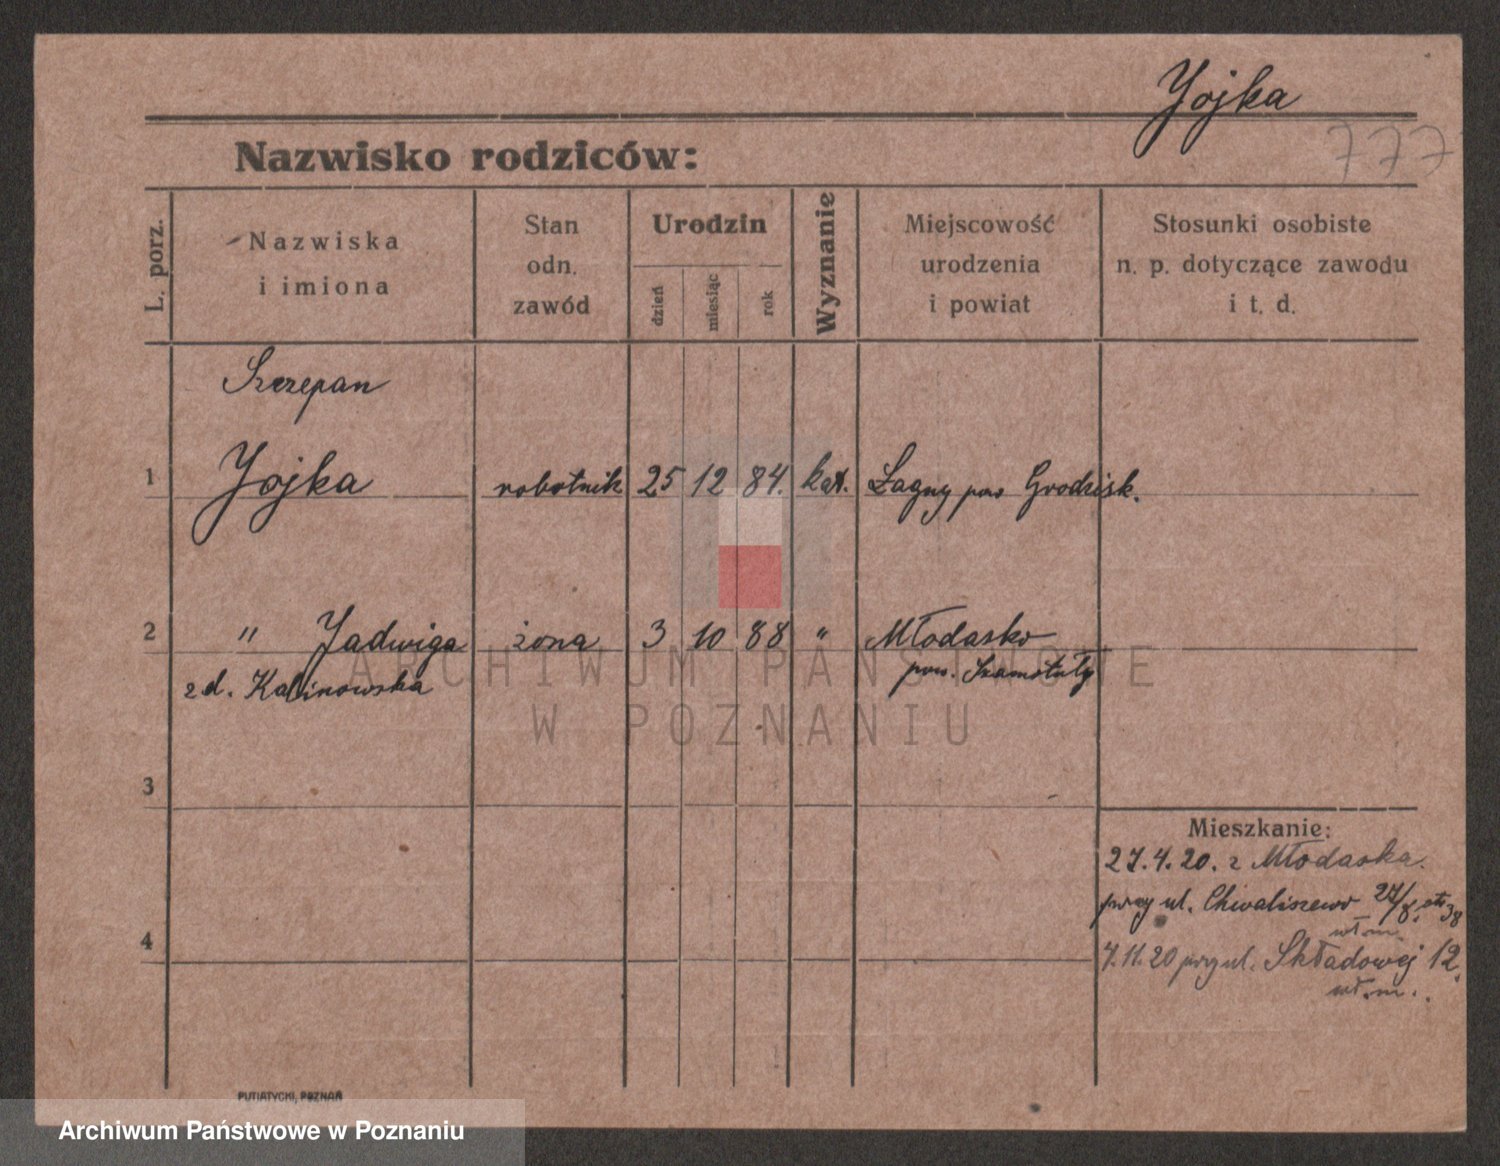 Yojka
777
Nazwisko rodziców:
L. porz.
Nazwiska
i imiona
Stan
odn.
zawód
Urodzin
dzień
miesiąc
rok
Wyznanie
Miejscowość
urodzenia
i powiat
Stosunki osobiste
n. p. dotyczące zawodu
i t. d.
Szczepan
1 Yojka robotnik 25 12 84. kat. Łagny pow Grodzisk.
2 " Jadwiga żona 3 10 88 " Młodasko
zd. Kalinowska pow. Szamotuły
ARCHIWUM PAŃSTWOWE
W POZNANIU
3
Mieszkanie:
27.4.20. z Młodaska.
przy ul. Chwaliszewo 27/8. 38
wł.m.
4
7.11.20 przy ul. Składowej 12.
wł.m.
PUTIATYCKI, POZNAŃ
Archiwum Państwowe w Poznaniu